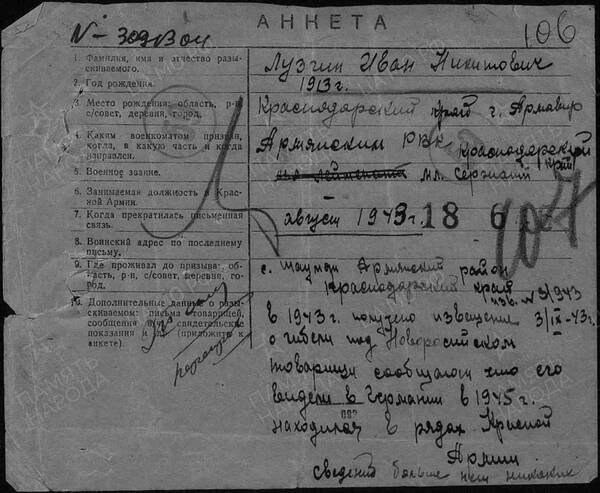 АНКЕТА
106
1. Фамилия, имя и отчество разы-
скиваемого.
Лузгин Иван Никитович
2. Год рождения.
1913 г.
3. Место рождения: область, р-н
с/совет, деревня, город.
Краснодарский край г. Армавир
4. Каким военкоматом призван,
когда, в какую часть и когда
направлен.
Армянским РВК Краснодарский
край
5. Военное звание.
мл. сержант
6. Занимаемая должность в Крас-
ной Армии.
7. Когда прекратилась письменная
связь.
август 1943
186
107
8. Воинский адрес по последнему
письму.
9. Где проживал до призыва: об-
ласть, р-н, с/совет, деревня, го-
род.
с. Шаумян Армянский район
Краснодарский край
10. Дополнительные данные о разы-
скиваемом: письма товарищей,
сообщения или свидетельские
показания и др. (приложить к
анкете).
изв. № 3/943
в 1943 г. получено извещение 3/IX-43 г.
о гибели под Новоросийском
товарищи сообщают что его
видели в Германии в 1945 г.
находился в рядах Красной
Армии
сведений больше нет никаких
ПАМЯТЬ
НАРОДА